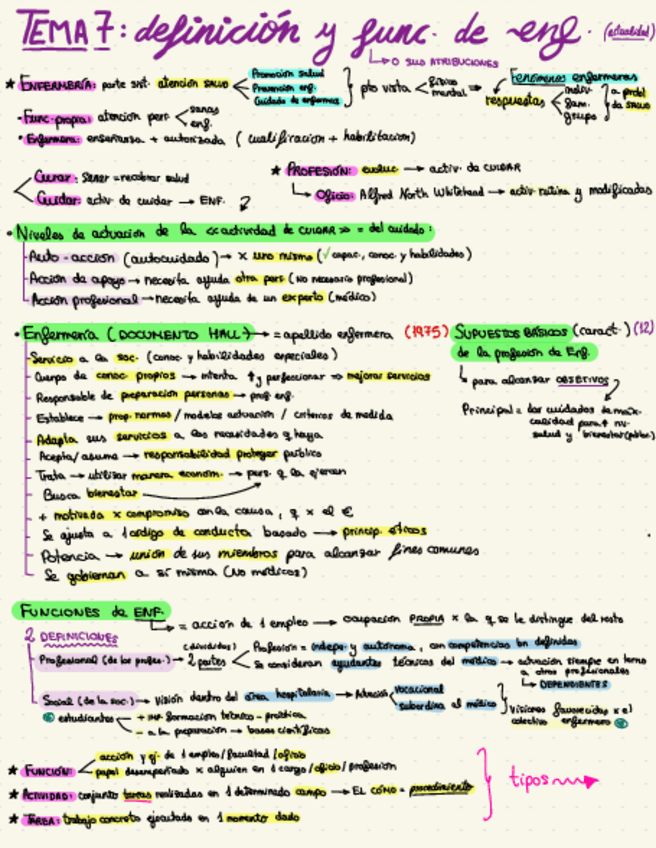 TEMA 7: definición y func. de enf. (actualidad)
↳ O SUS ATRIBUCIONES
★ ENFERMERÍA: parte sist. atención SALUD
Promoción salud
Prevención enf.
Cuidado de enfermos
pto vista físico mental ⇒ respuestas
Fenómenos enfermeros
indiv. fam. grupo
a probl de SALUD
• Func. propia: atención pers. sanas enf.
• Enfermera: enseñanza + autorizada (cualificación + habilitación)
Curar: sanar = recobrar salud
Cuidar: activ. de cuidar → ENF.
★ PROFESIÓN: evoluc → activ. de CUIDAR
↳ Oficio: Alfred North Whitehead → activ. rutina y modificadas
• Niveles de actuación de la <<actividad de CUIDAR>> = del cuidado:
Auto-acción (autocuidado) → x uno mismo (✓ capac., conoc. y habilidades)
Acción de apoyo → necesita ayuda otra pers (No necesario profesional)
Acción profesional → necesita ayuda de un experto (médico)
• Enfermería (DOCUMENTO HALL) → = apellido enfermera (1975)
SUPUESTOS BÁSICOS (caract.) (12)
de la profesión de Enf.
↳ para alcanzar OBJETIVOS
Principal = dar cuidados de máx. calidad para ↑ nv. salud y bienestar (pobl.)
Servicio a la soc. (conoc y habilidades especiales)
Cuerpo de conoc. propios → intenta ↑ y perfeccionar ⇒ mejorar servicios
Responsable de preparación personas → prof. enf.
Establece → prop. normas / modelos actuación / criterios de medida
Adapta sus servicios a las necesidades q haya
Acepta/asume → responsabilidad proteger público
Trata → utilizar manera econom. → pers. q la ejercen
Busca bienestar
+ motivada x compromiso con la causa, q x el €
Se ajusta a 1 código de conducta basado → princip. éticos
Potencia → unión de sus miembros para alcanzar fines comunes
Se gobiernan a sí misma (No médicos)
FUNCIONES de ENF.
↳ = acción de 1 empleo → ocupación PROPIA x la q se le distingue del resto
2 DEFINICIONES
Profesional (de los profes.) → 2 partes (divididas)
Profesión = indep. y autónoma, con competencias bn definidas
Se consideran ayudantes técnicos del médico → actuación siempre en torno a otros profesionales
↳ DEPENDIENTES
Social (de la soc.) → visión dentro del área hospitalaria →
vocacional
subordina al médico
Visiones favorecidas x el colectivo enfermero
estudiantes + imp formación teórico-práctica
- a la preparación → bases científicas
★ FUNCIÓN: acción y ej. de 1 empleo/facultad/oficio
papel desempeñado x alguien en 1 cargo/oficio/profesión
★ ACTIVIDAD: conjunto tareas realizadas en 1 determinado campo → EL CÓMO = procedimiento
★ TAREA: trabajo concreto ejecutado en 1 momento dado
tipos